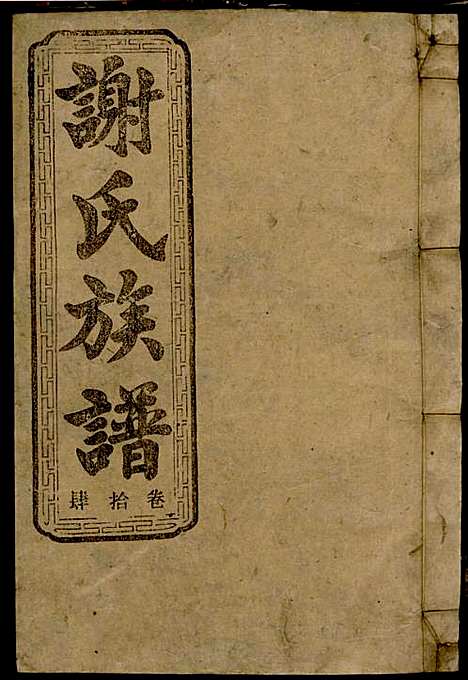 謝氏族譜
卷拾肆